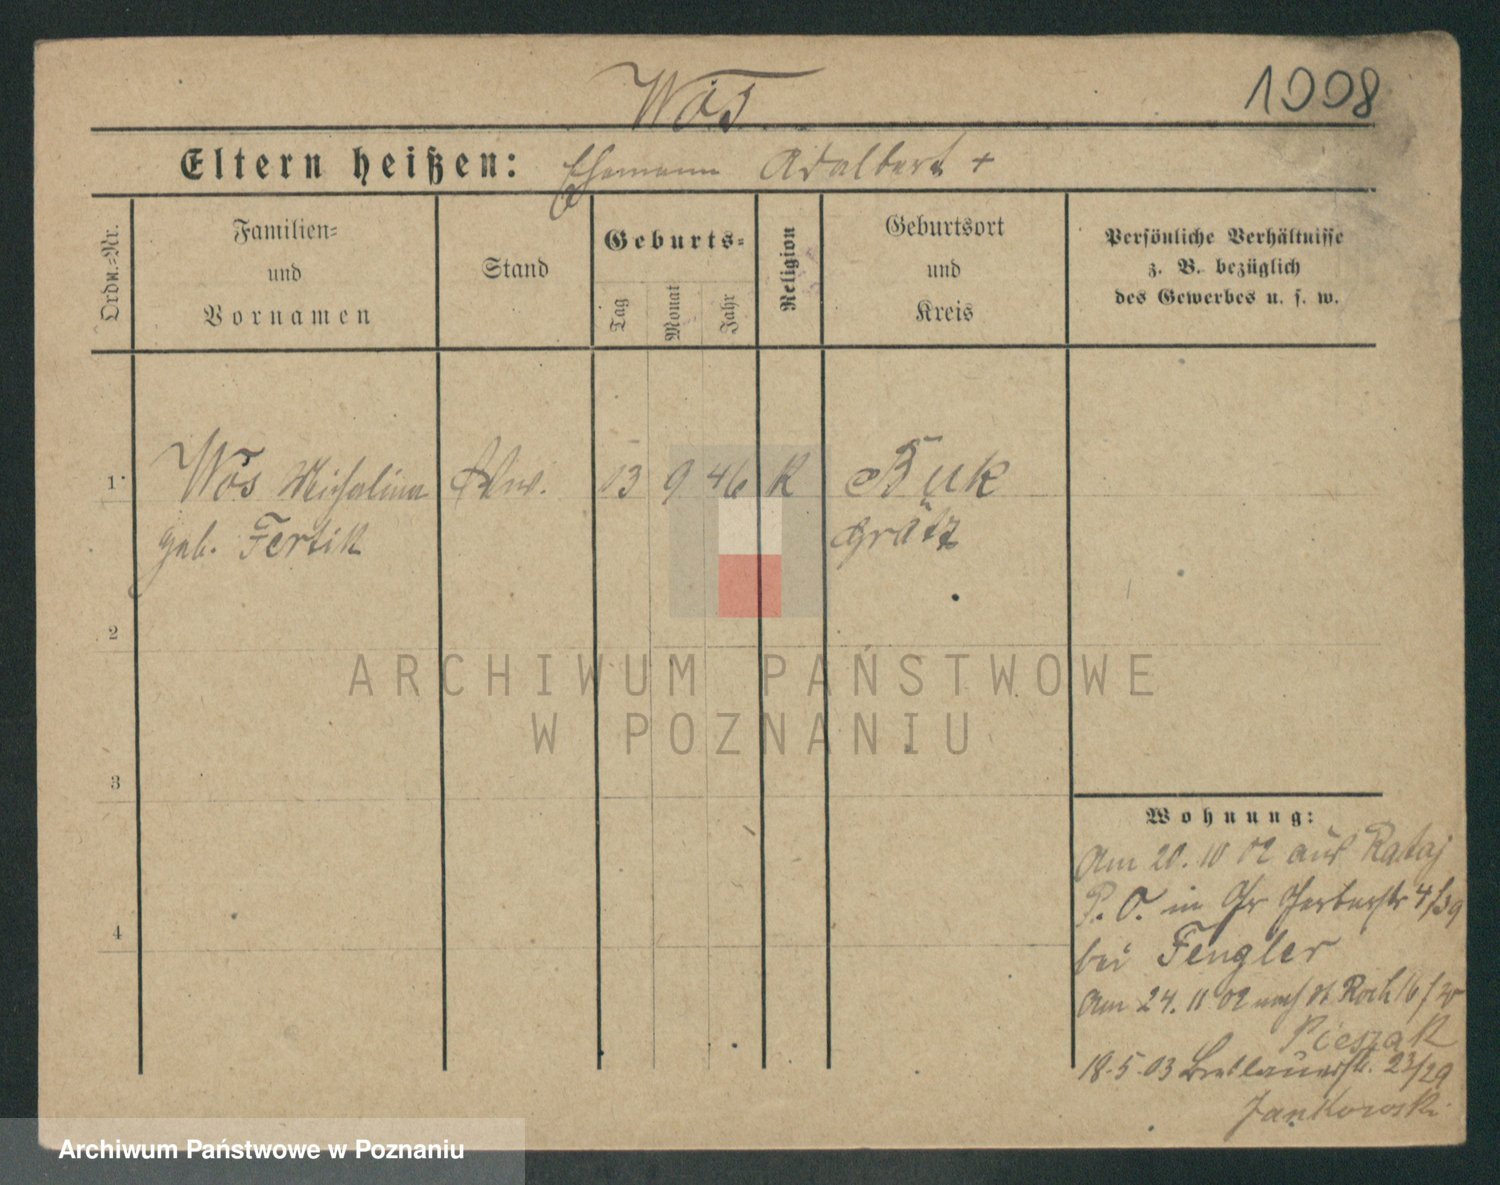 Wóś
1998
Eltern heißen: Ehemann Adalbert +
Ordn.-Nr.
Familien-
und
Vornamen
Stand
Geburts-
Tag
Monat
Jahr
Religion
Geburtsort
und
Kreis
Persönliche Verhältnisse
z. B. bezüglich
des Gewerbes u. s. w.
1. Wós Michalina Ww. 03 9 46 K Buk
geb. Fertik Grätz
2
3
4
ARCHIWUM PAŃSTWOWE
W POZNANIU
Wohnung:
Am 20. 10 02 aus Rataj
P. O. in Gr Gerberstr 4/39
bei Fengler
Am 24. 11 02 nach St Roch 16/
Pieszak
18.5.03 Breslauerstr. 23/29
Jankowski
Archiwum Państwowe w Poznaniu